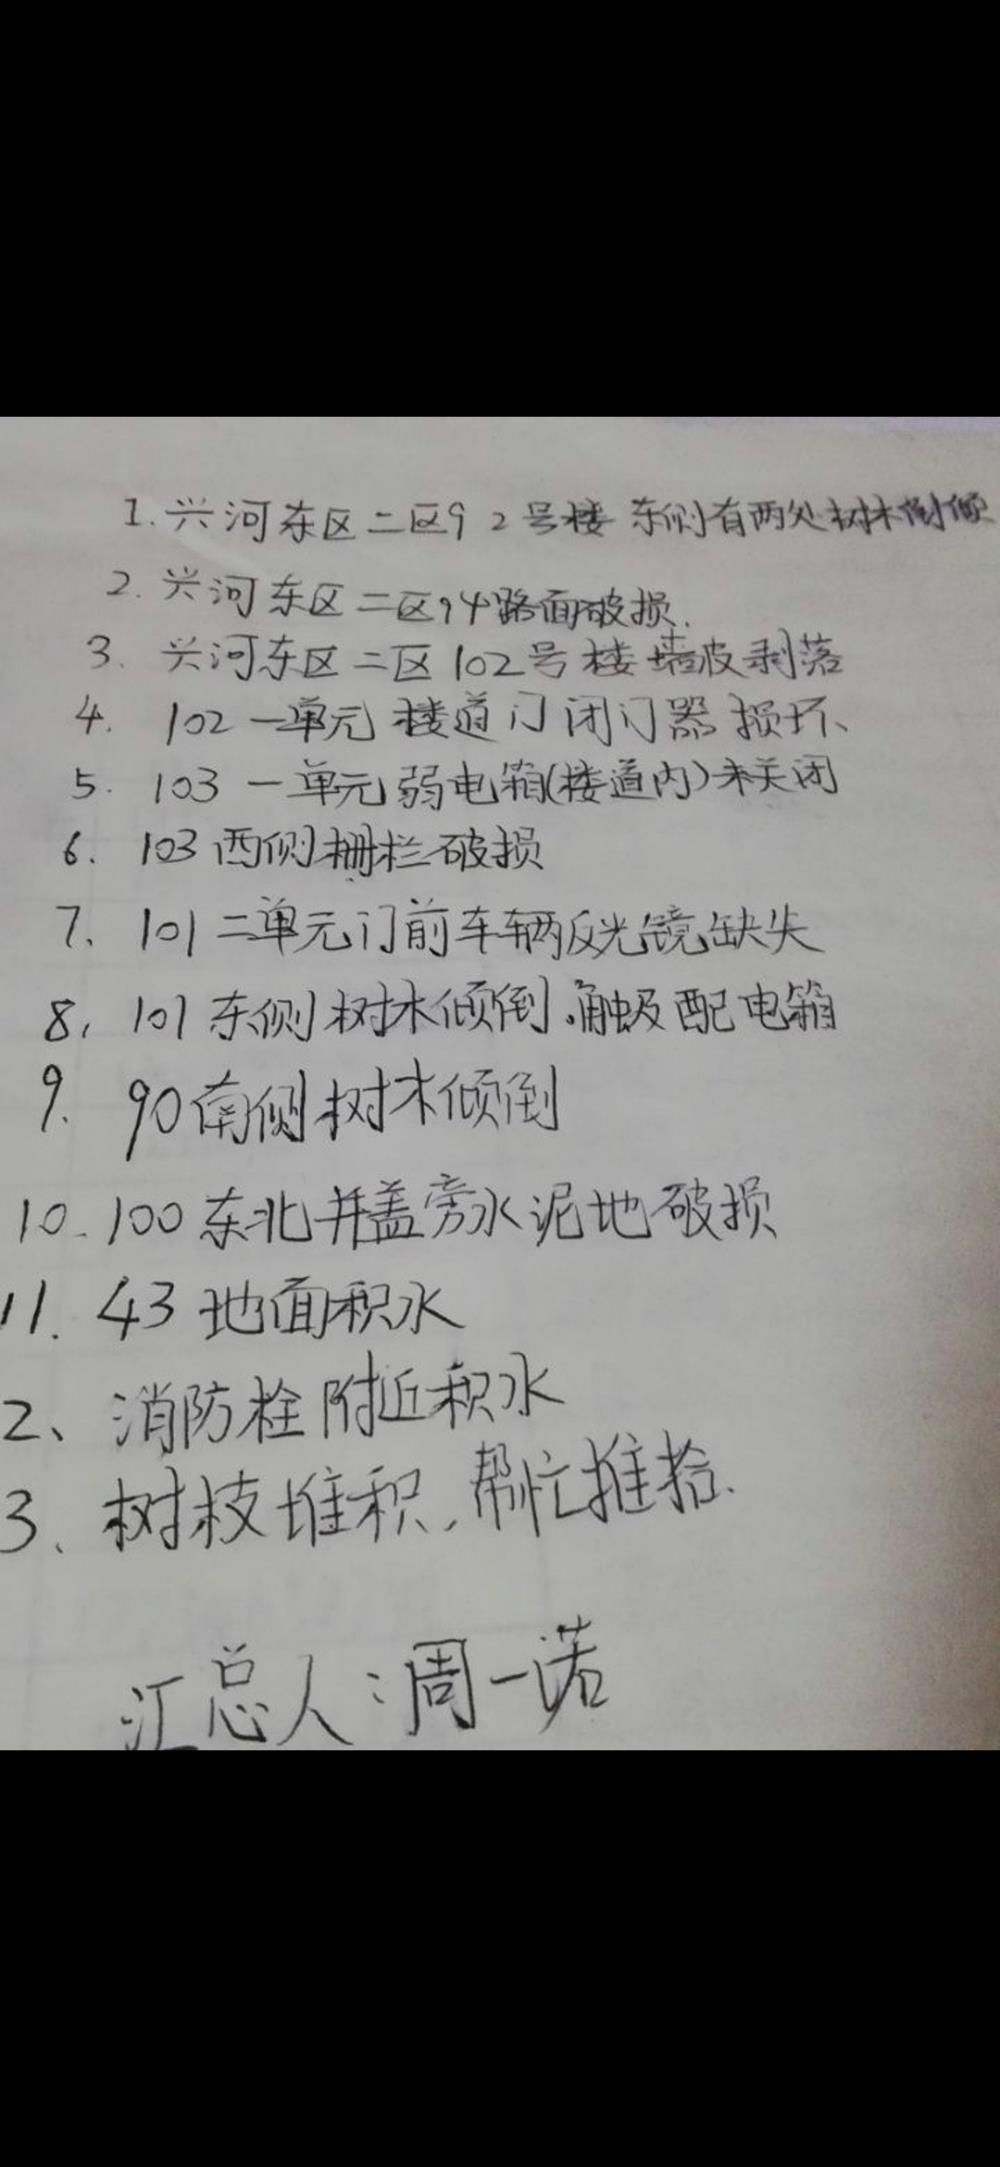 1. 兴河东区二区92号楼 东侧有两处树木倒倾
2. 兴河东区二区94路面破损.
3. 兴河东区二区102号楼墙皮剥落
4. 102一单元楼道门闭门器损坏、
5. 103一单元弱电箱(楼道内)未关闭
6. 103西侧栅栏破损
7、101二单元门前车辆反光镜缺失
8, 101东侧树木倾倒.触及配电箱
9. 90南侧树木倾倒
10. 100东北井盖旁水泥地破损
11. 43地面积水
2、消防栓附近积水
3、树枝堆积,帮忙推拾.
汇总人:周一诺